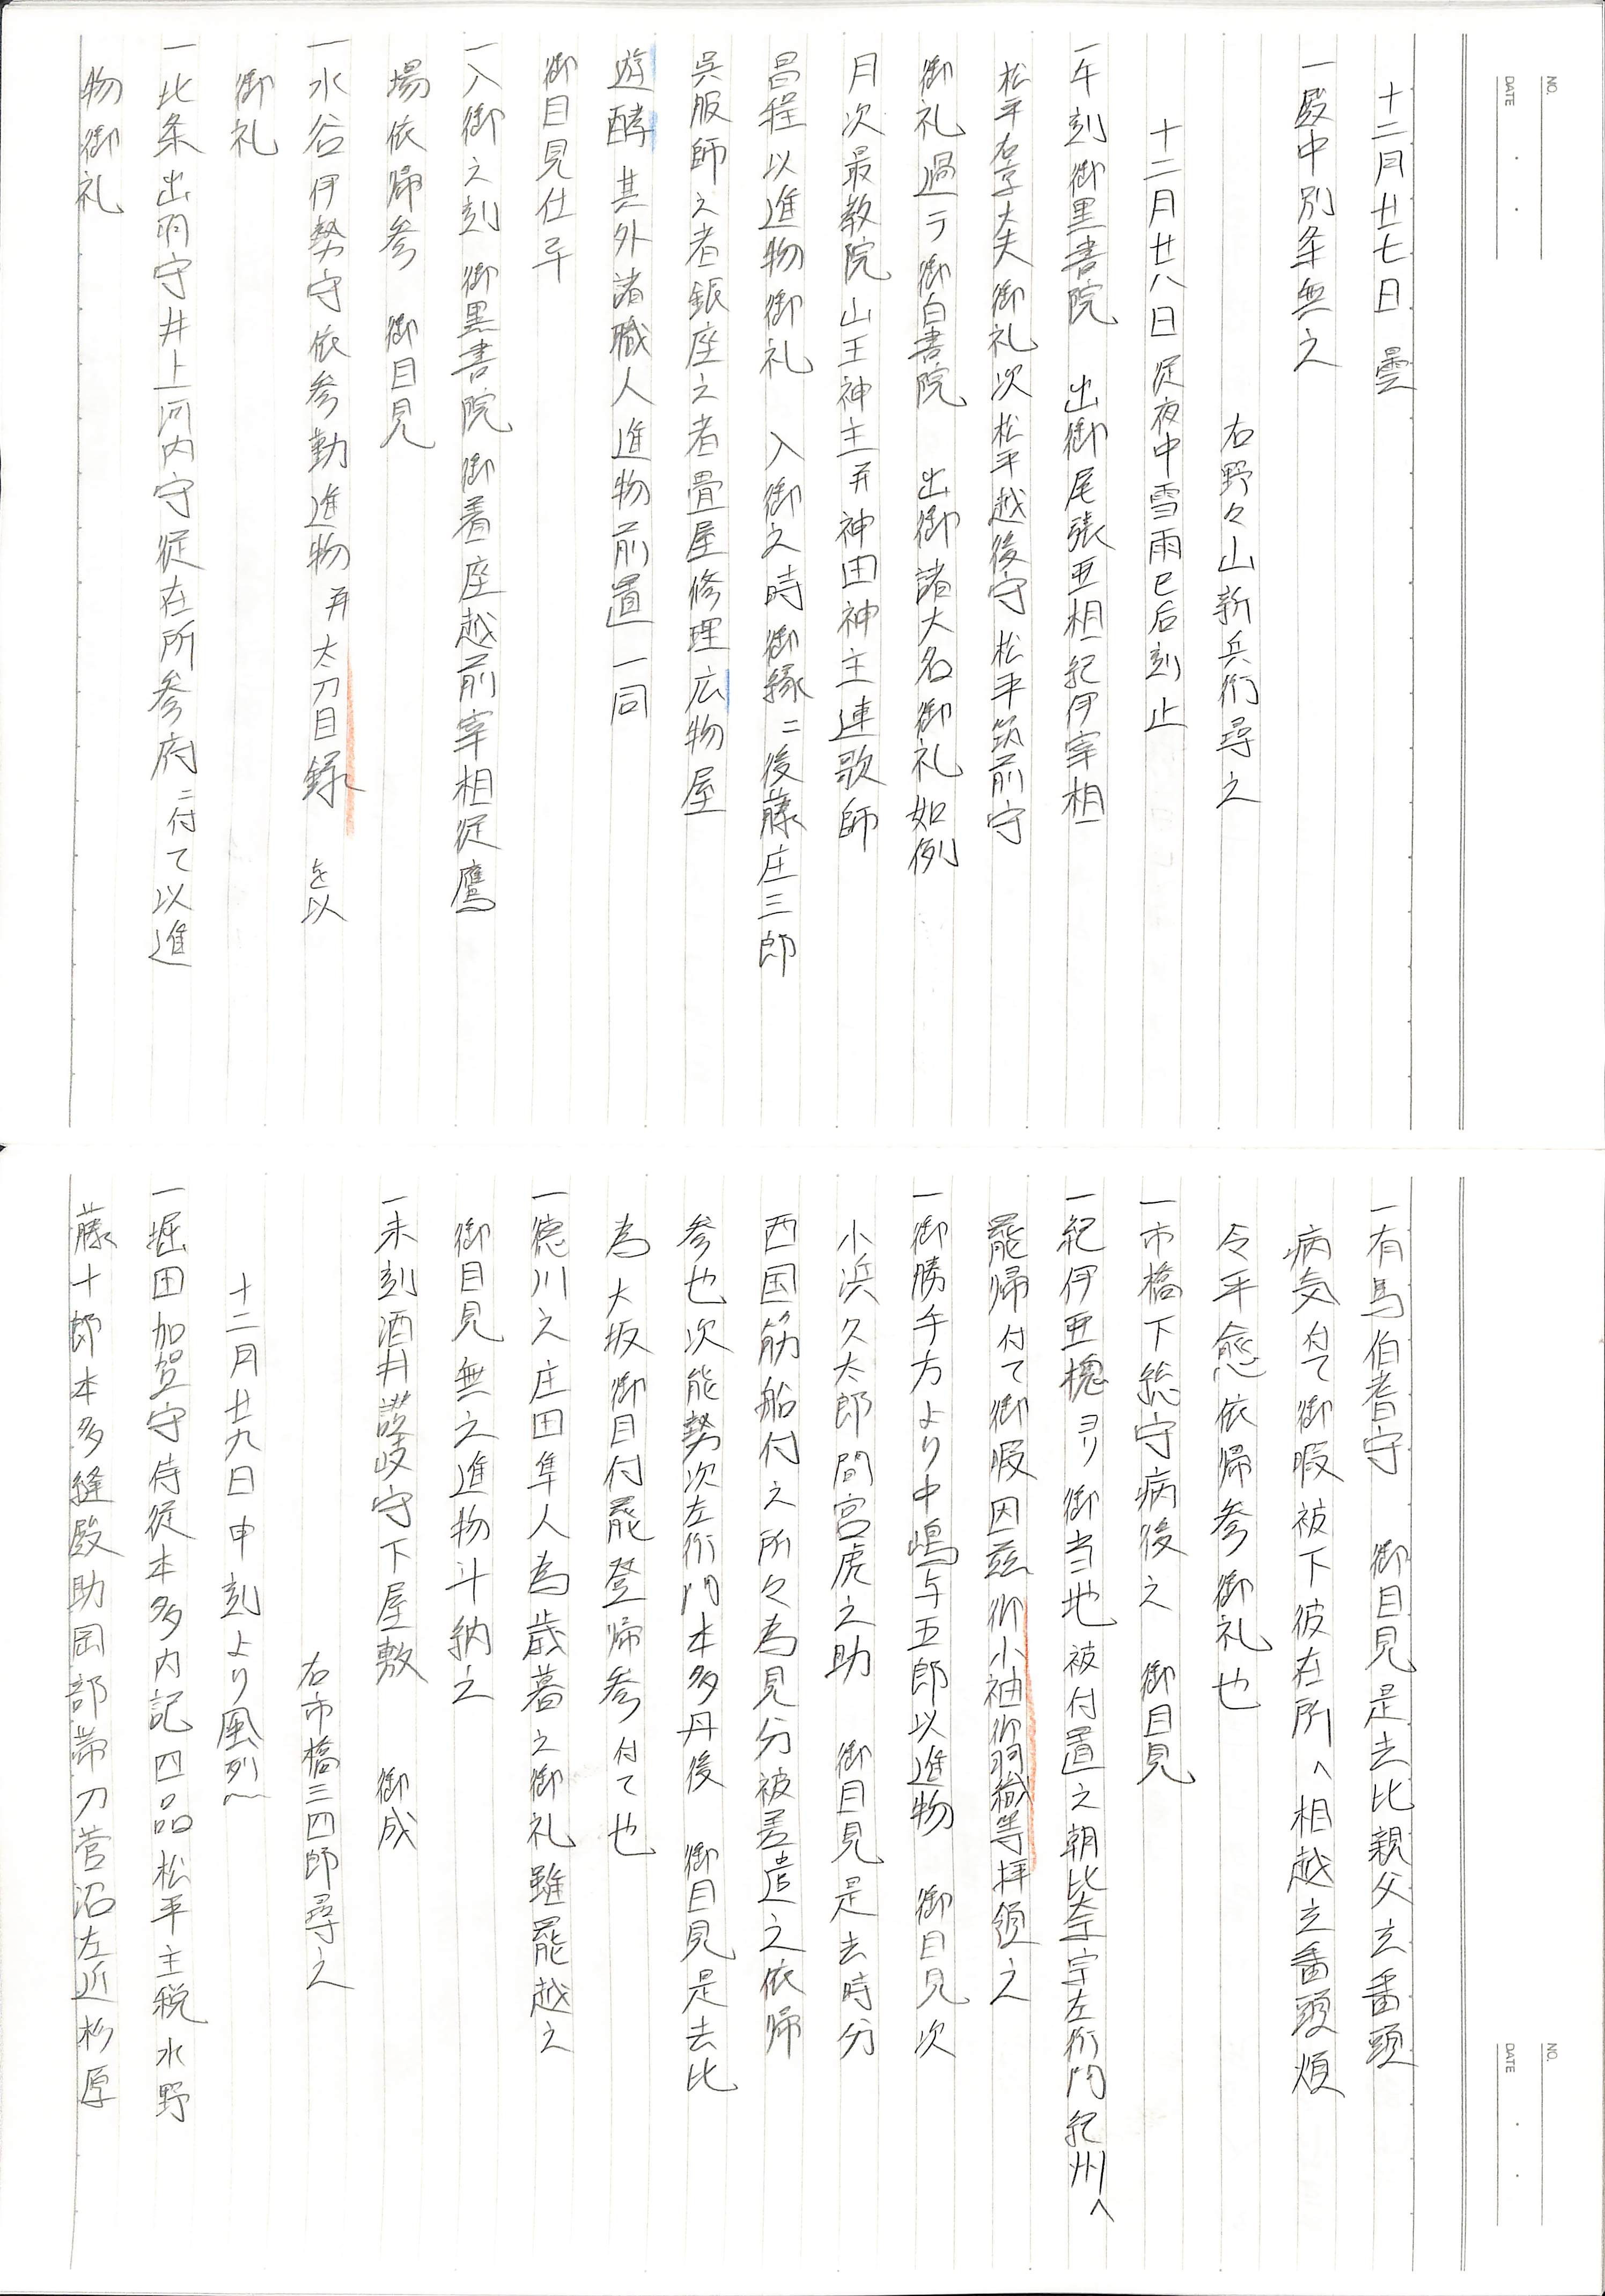 NO.
DATE
十二月廿七日　曇
一殿中別条無之
右野々山新兵衛尋之
十二月廿八日従夜中雪雨巳后刻止
一午刻御黒書院　出御尾張亜相紀伊宰相
松平右京大夫御礼次松平越後守松平筑前守
御礼過テ御白書院　出御諸大名御礼如例
月次最教院山王神主并神田神主連歌師
昌程以進物御礼　入御之時御縁ニ後藤庄三郎
呉服師之者銀座之者畳屋修理広物屋
遊酵其外諸職人進物前置一同
御目見仕平
一入御之刻御黒書院御着座越前宰相従鷹
場依帰参　御目見
一水谷伊勢守依参勤進物并太刀目録を以
御礼
一北条出羽守井上河内守従在所参府ニ付て以進
物御礼
NO.
DATE
一有馬伯耆守　御目見是去比親父玄番頭
病気付て御暇被下彼在所へ相越之番頭煩
令平愈依帰参御礼也
一市橋下総守病後之　御目見
一紀伊亜槐ヨリ御当地被付置之朝比奈宇左衛門紀州へ
罷帰付て御暇因茲御小袖御羽織等拝領之
一御勝手方より中嶋与五郎以進物　御目見次
小浜久太郎間宮虎之助　御目見是去時分
西国筋船付之所々為見分被差遣之依帰
参也次能勢次左衛門本多丹後　御目見是去比
為大坂御目付罷登帰参付て也
一徳川之庄田隼人為歳暮之御礼雖罷越之
御目見無之進物斗納之
一未刻酒井讃岐守下屋敷　御成
右市橋三四郎尋之
十二月廿九日申刻より風烈
一堀田加賀守侍従本多内記四品松平主税水野
藤十郎本多縫殿助岡部帯刀菅沼左近杉原